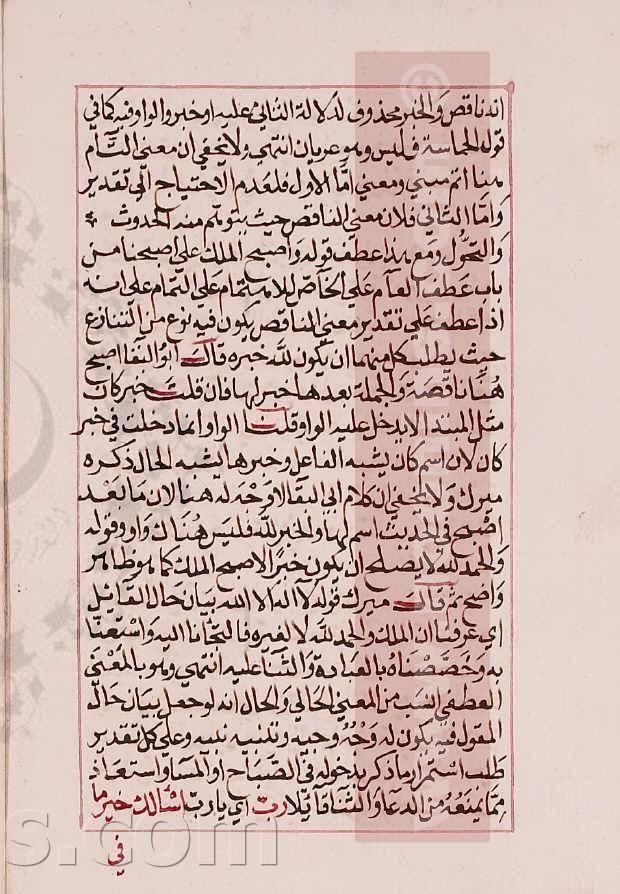 انه ناقص والخبر محذوف لدلالة الثاني عليه او خبر والواو فيه كما في
قوله الحماسة فليس وهو عريان انتهى ولا يخفى ان معنى التام
هنا اتم مبنى ومعنى اما الاول فلعدم الاحتياج الى تقدير
واما الثاني فلان معنى الناقص حيث يتوهم منه الحدوث
والتحول ومع هذا عطف قوله واصبح الملك على اصبحنا من
باب عطف العام على الخاص للاهتمام على التمام على انه
اذا عطف على تقدير معنى الناقص يكون فيه نوع من التنازع
حيث يطلب كل منهما ان يكون لله خبره قال ابو البقا اصبح
هنا ناقصة والجملة بعدها خبر لها فان قلت خبر كان
مثل المبتدا لا يدخل عليه الواو قلنا الواو انما دخلت في خبر
كان لان اسم كان يشبه الفاعل وخبرها يشبه الحال ذكره
ميرك ولا يخفى ان كلام ابي البقا لا وجه له هنا لان ما بعد
اصبح في الحديث اسم لها والخبر لله فليس هناك واو وقوله
والحمد لله لا يصلح ان يكون خبرا لاصبح الملك كما هو ظاهر
واضح ثم قال ميرك قوله لا اله الا الله بيان حال القائل
اي عرفنا ان الملك والحمد لله لا لغيره فالتجانا اليه واستعنا
به وخصصناه بالعبادة والثنا عليه انتهى وهو بالمعنى
العطفي انسب من المعنى الحالي والحال انه لو جعل بيان حال
المقول فيه يكون له وجه وجيه وتنبيه نبيه وعلى كل تقدير
طلب استمرار ما ذكر بدخوله في الصباح او المسا واستعاذ
مما يمنعه من الدعا والثنا قائلا رب اي يا رب اسالك خير ما
في
s.com